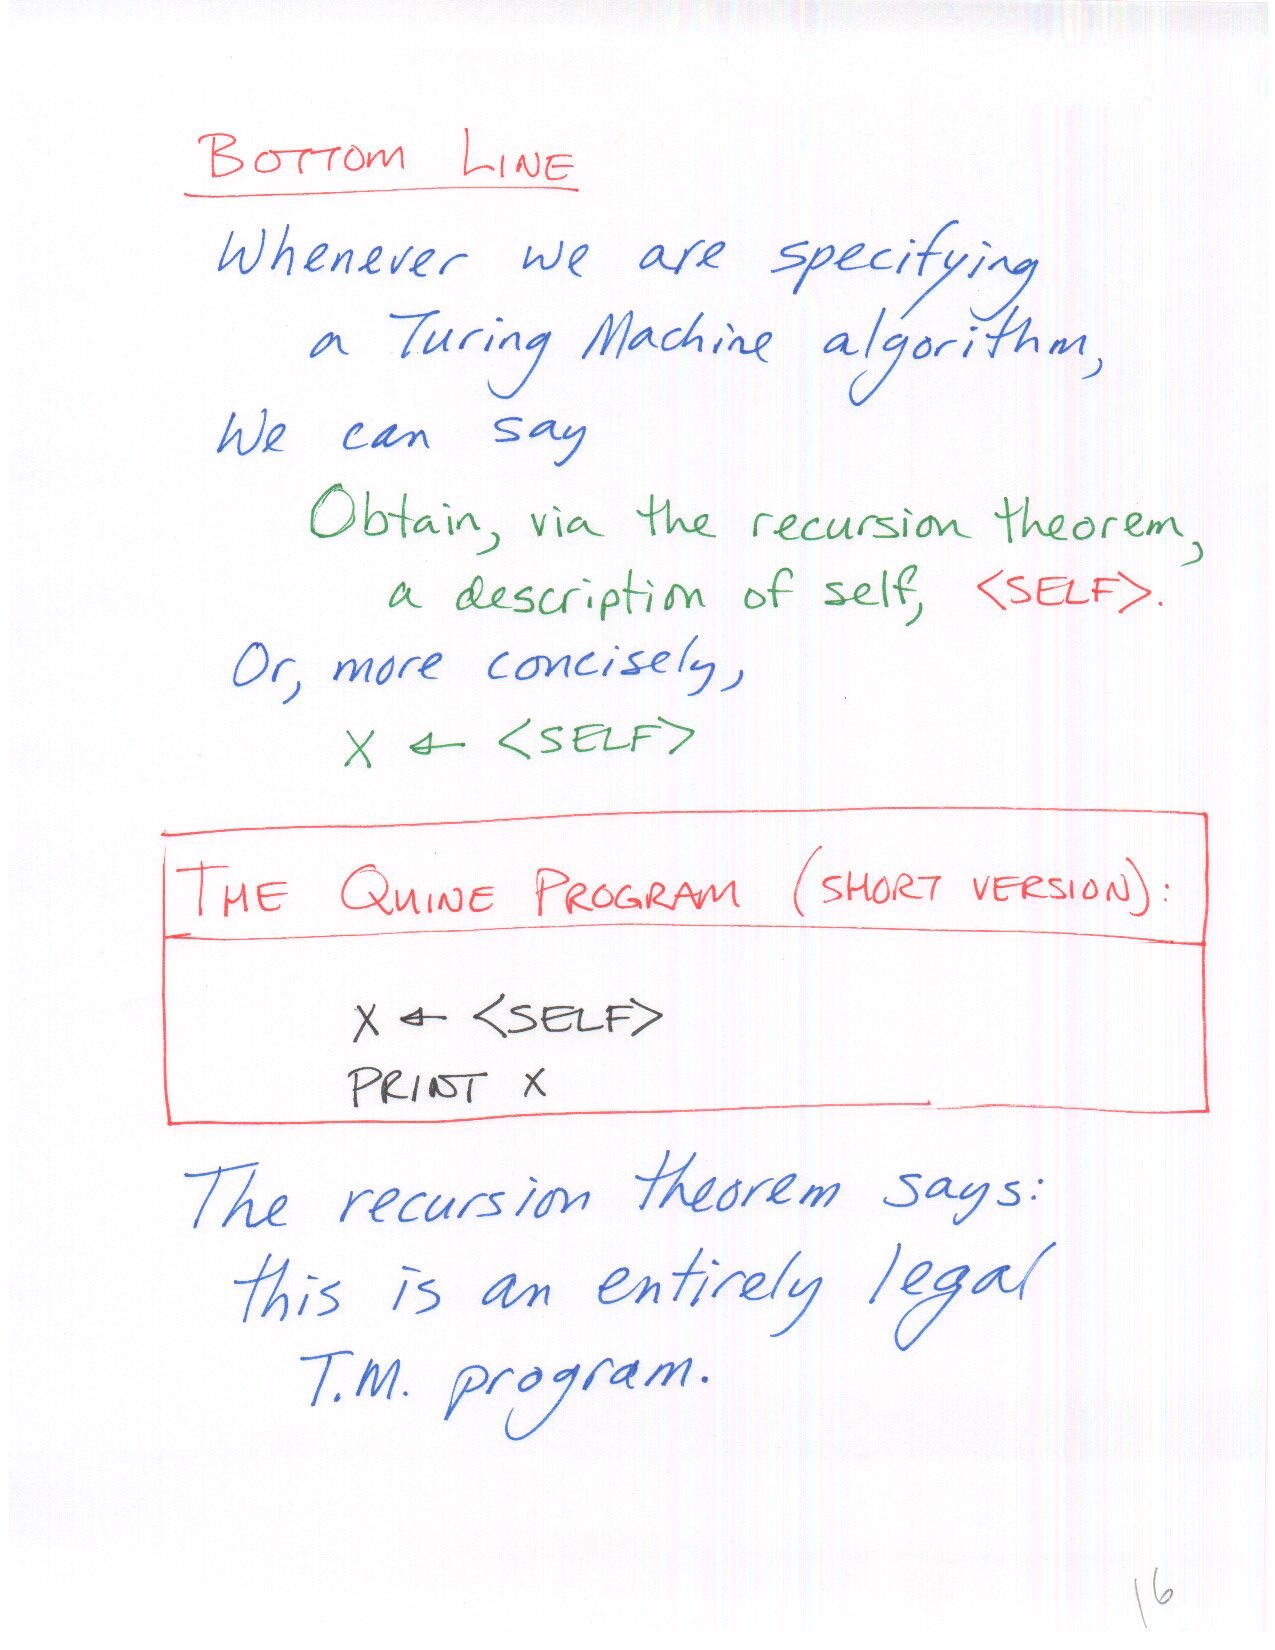 BOTTOM LINE
Whenever we are specifying
a Turing Machine algorithm,
We can say
Obtain, via the recursion theorem,
a description of self, <SELF>.
Or, more concisely,
X ← <SELF>
THE QUINE PROGRAM (SHORT VERSION):
X ← <SELF>
PRINT X
The recursion theorem says:
this is an entirely legal
T.M. program.
16